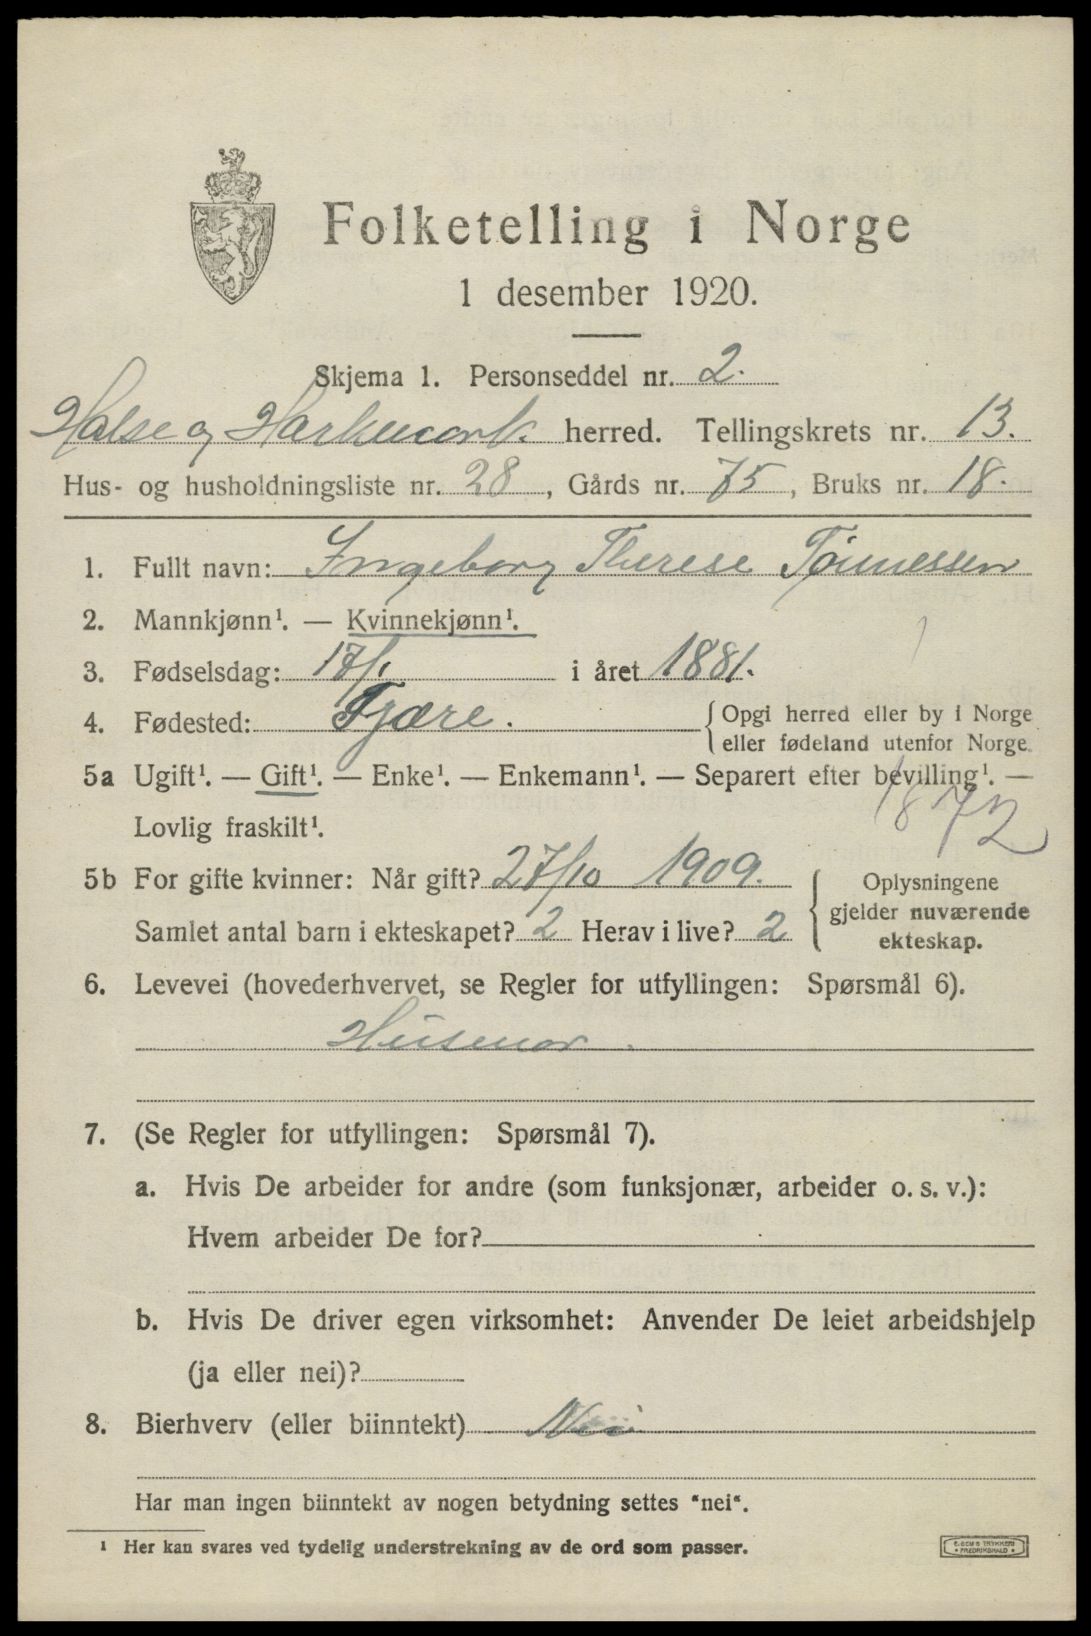 Folketelling i Norge
1 desember 1920.
Skjema 1. Personseddel nr. 2.
Halse og Harkmark herred. Tellingskrets nr. 13.
Hus- og husholdningsliste nr. 28, Gårds nr. 75, Bruks nr. 18.
1. Fullt navn: Ingeborg Therese Tønnessen
2. Mannkjønn¹. — Kvinnekjønn¹.
3. Fødselsdag: 17/1 i året 1881.
4. Fødested: Fjære. {Opgi herred eller by i Norge
eller fødeland utenfor Norge.
5a Ugift¹. — Gift¹. — Enke¹. — Enkemann¹. — Separert efter bevilling¹. —
Lovlig fraskilt¹.
1872
5b For gifte kvinner: Når gift? 27/10 1909.
Samlet antal barn i ekteskapet? 2 Herav i live? 2
{Oplysningene
gjelder nuværende
ekteskap.
6. Levevei (hovederhvervet, se Regler for utfyllingen: Spørsmål 6).
Husmor.
7. (Se Regler for utfyllingen: Spørsmål 7).
a. Hvis De arbeider for andre (som funksjonær, arbeider o. s. v.):
Hvem arbeider De for?
b. Hvis De driver egen virksomhet: Anvender De leiet arbeidshjelp
(ja eller nei)?
8. Bierhverv (eller biinntekt) Nei
Har man ingen biinntekt av nogen betydning settes "nei".
¹ Her kan svares ved tydelig understrekning av de ord som passer.
E. SEM'S TRYKKERI
• FREDRIKSHALD •